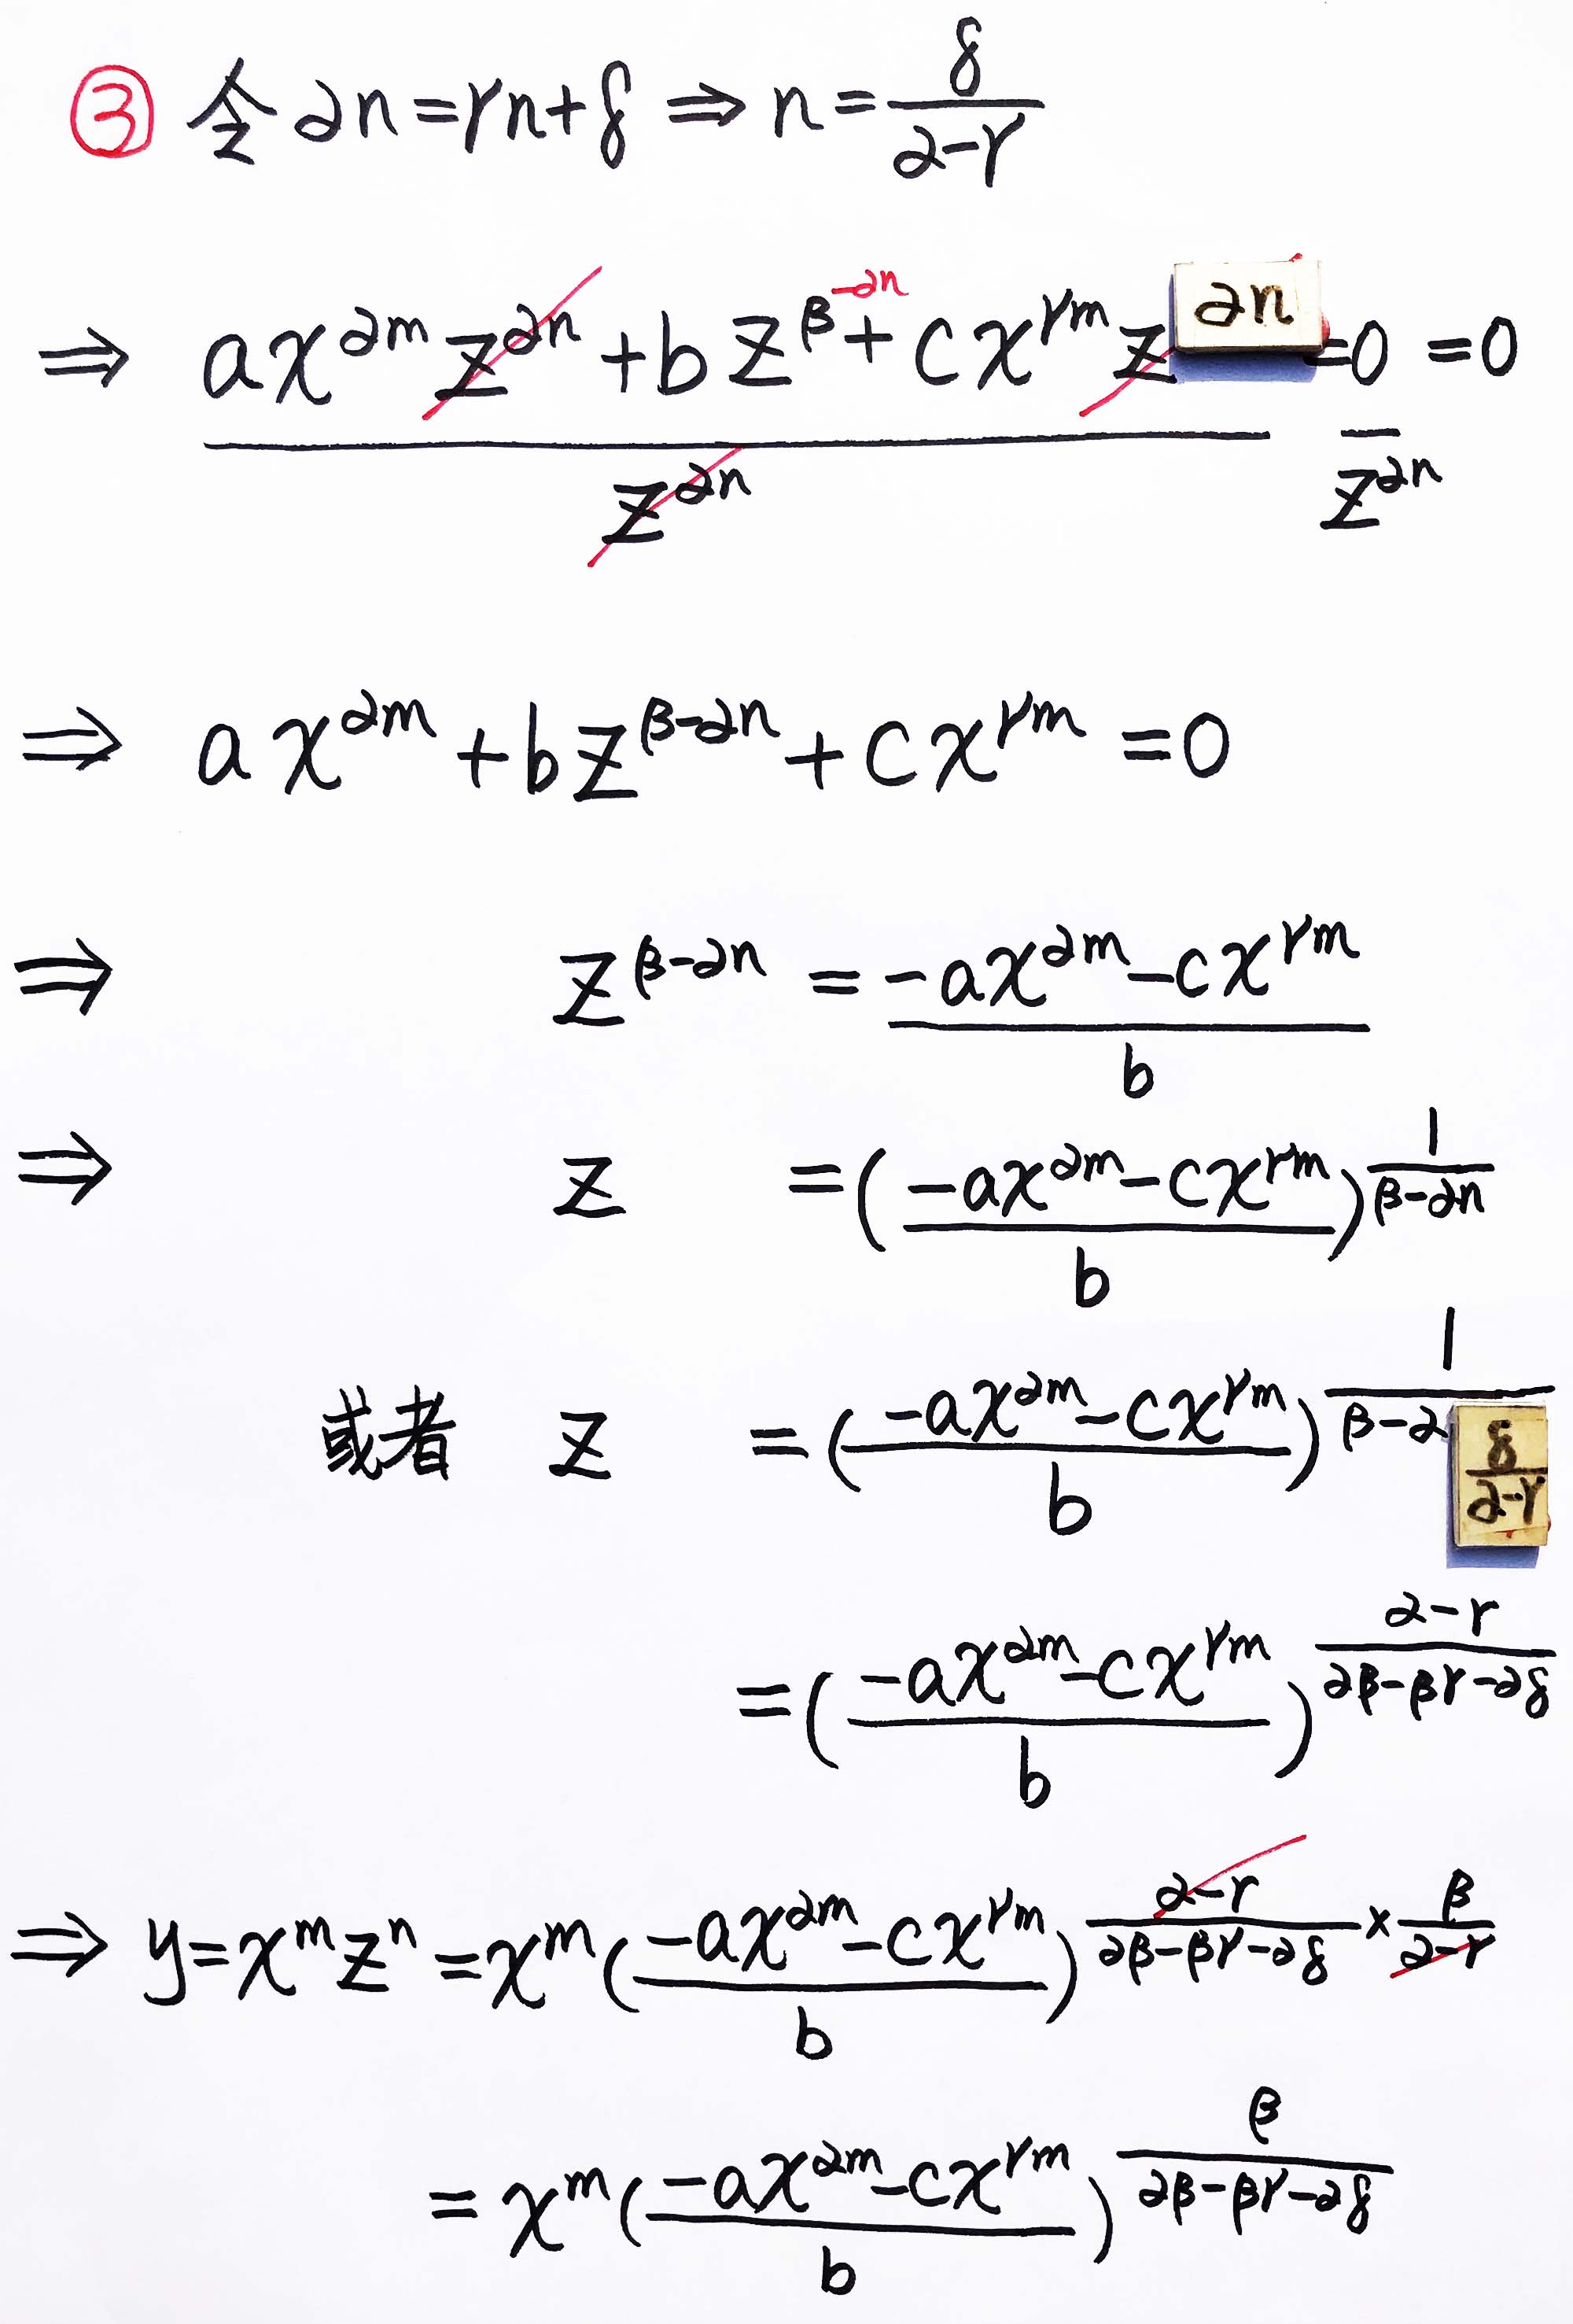 ③ 令 αn=γn+δ ⇒ n=δ/(α-γ)
⇒ (ax^{αm} z^{αn} + bz^{β-αn} + cx^{γm} z^{αn})/z^{αn} =0/z^{αn} =0
⇒ ax^{αm} + bz^{β-αn} + cx^{γm} =0
⇒ z^{β-αn} = (-ax^{αm}-cx^{γm})/b
⇒ z =((-ax^{αm}-cx^{γm})/b)^{1/(β-αn)}
或者 z =((-ax^{αm}-cx^{γm})/b)^{1/(β-α δ/(α-γ))}
=((-ax^{αm}-cx^{γm})/b)^{(α-γ)/(αβ-βγ-αδ)}
⇒ y=x^m z^n =x^m((-ax^{αm}-cx^{γm})/b)^{(α-γ)/(αβ-βγ-αδ) × β/(α-γ)}
= x^m((-ax^{αm}-cx^{γm})/b)^{β/(αβ-βγ-αδ)}